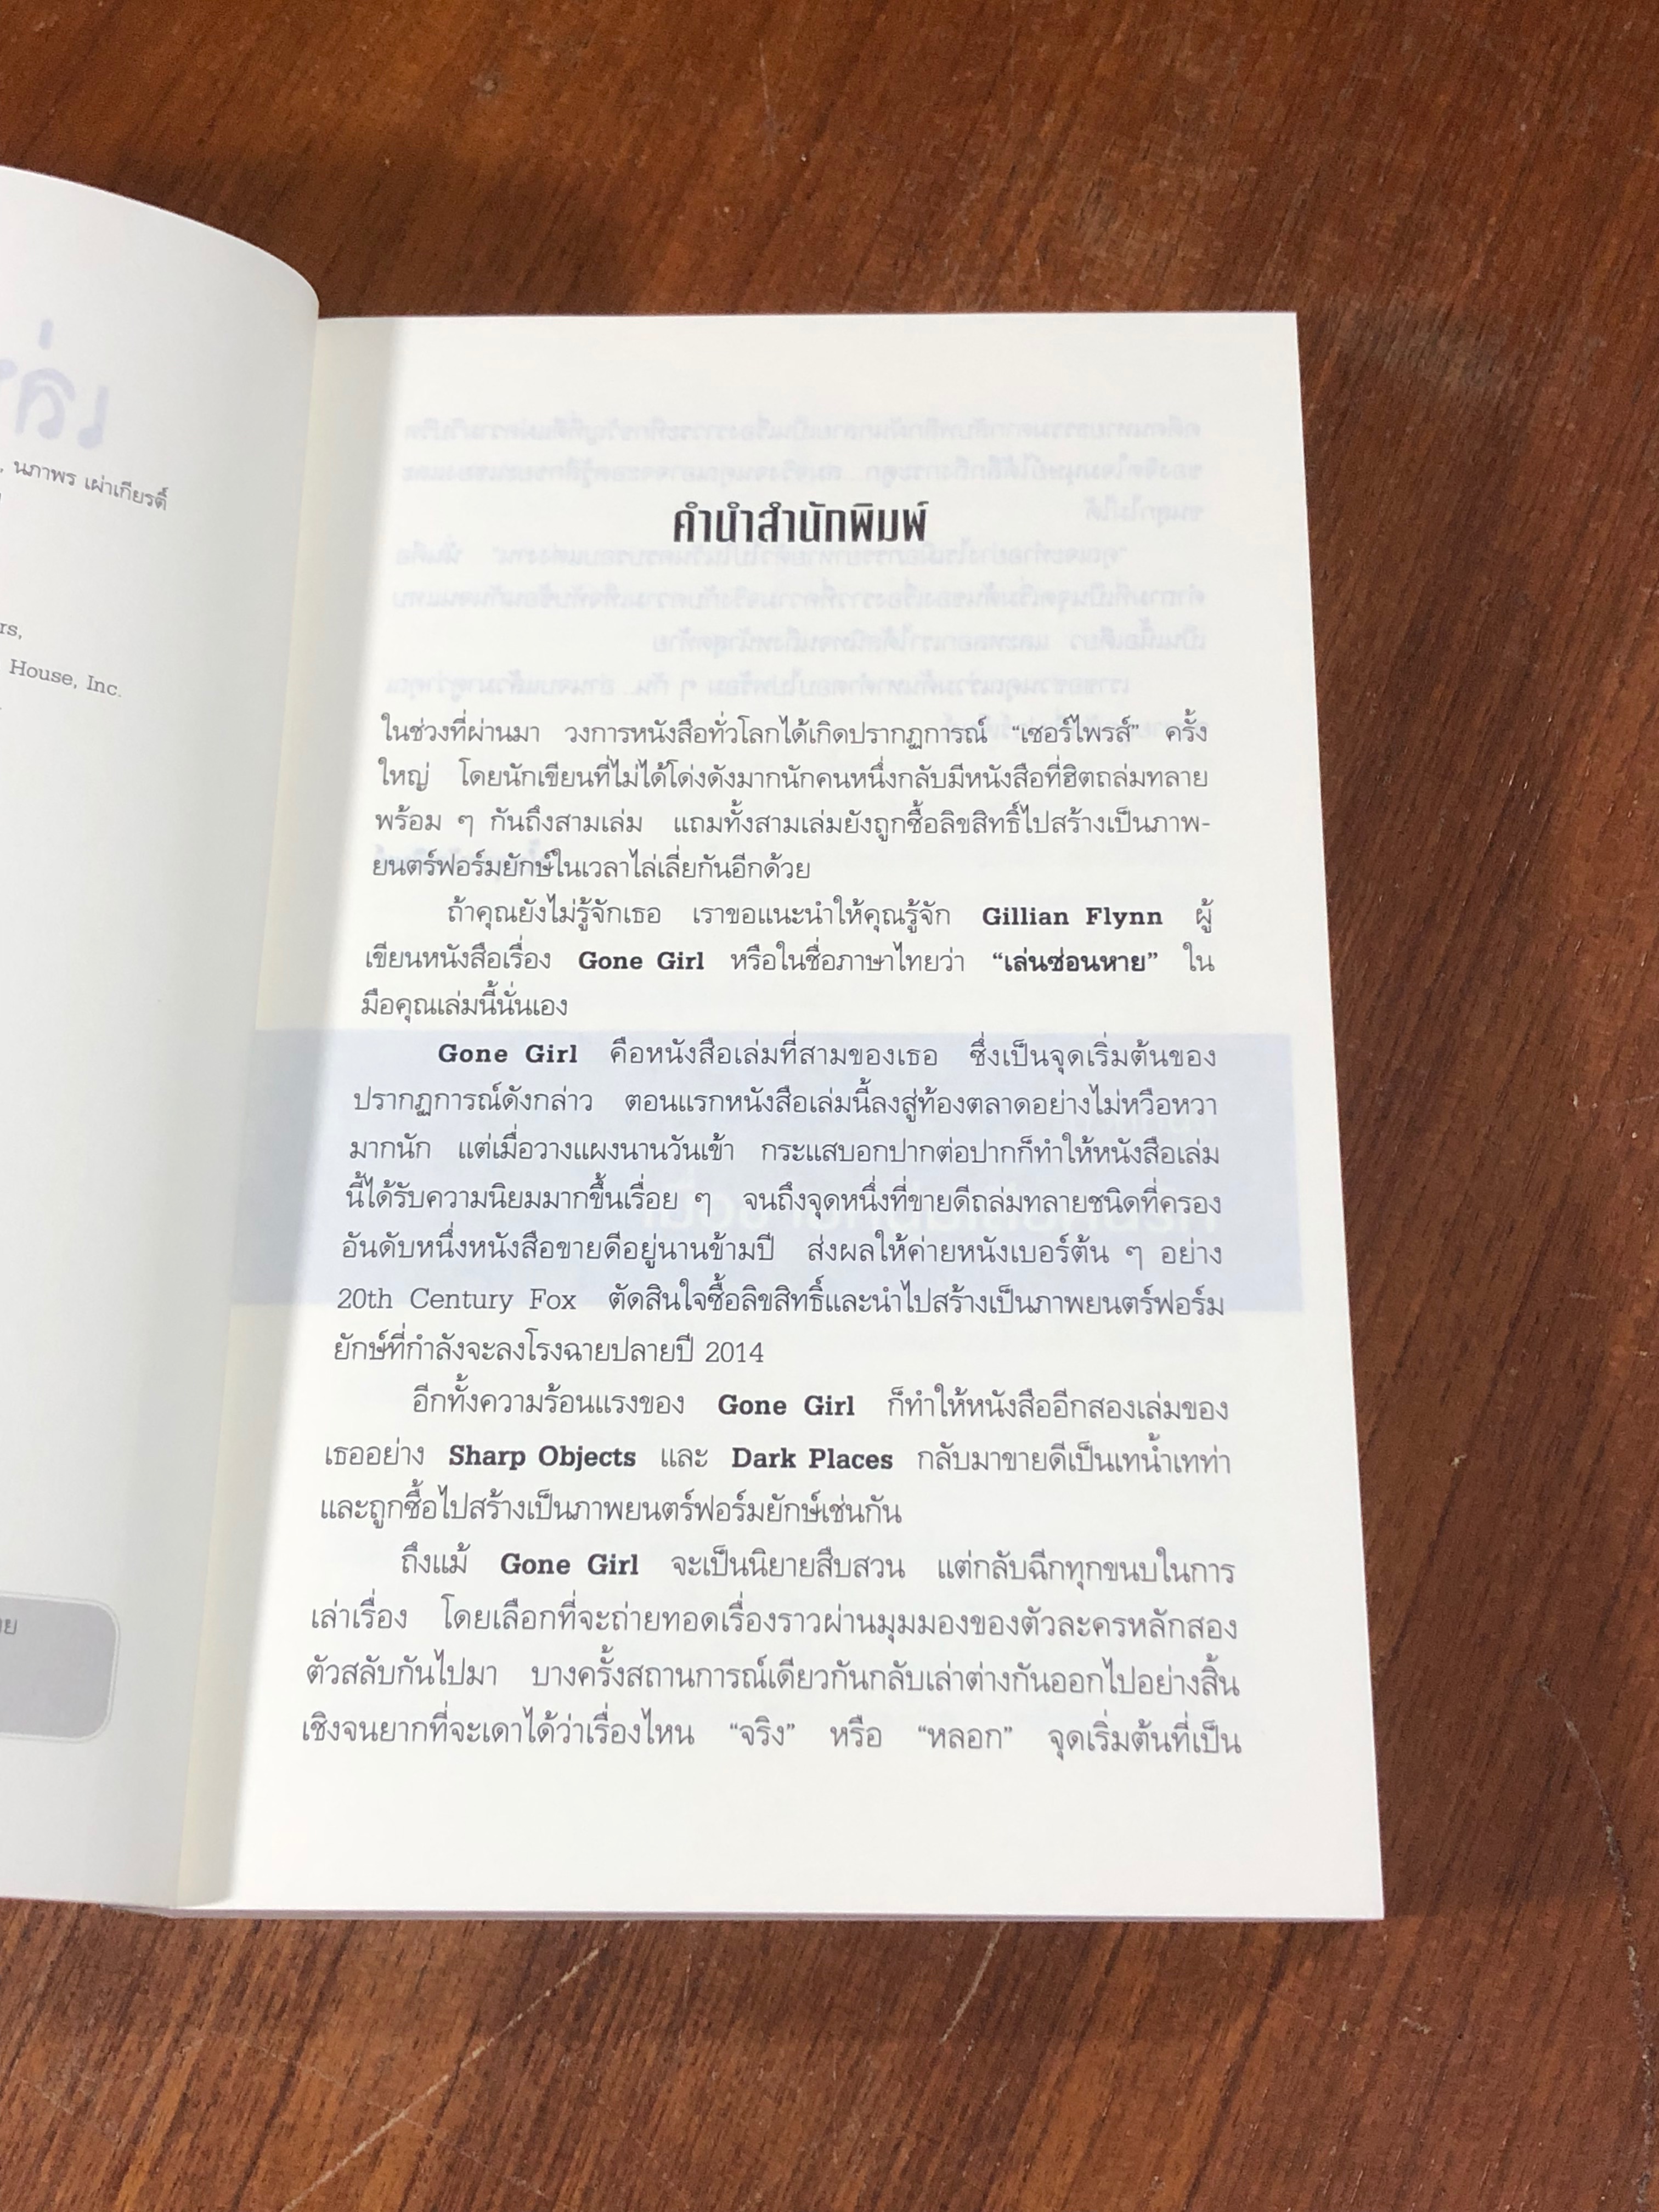 เล่
, นภาพร เผ่าเกียรติ์
rs,
House, Inc.
คำนำสำนักพิมพ์
ในช่วงที่ผ่านมา วงการหนังสือทั่วโลกได้เกิดปรากฏการณ์ “เซอร์ไพรส์” ครั้ง
ใหญ่ โดยนักเขียนที่ไม่ได้โด่งดังมากนักคนหนึ่งกลับมีหนังสือที่ฮิตถล่มทลาย
พร้อม ๆ กันถึงสามเล่ม แถมทั้งสามเล่มยังถูกซื้อลิขสิทธิ์ไปสร้างเป็นภาพ-
ยนตร์ฟอร์มยักษ์ในเวลาไล่เลี่ยกันอีกด้วย
ถ้าคุณยังไม่รู้จักเธอ เราขอแนะนำให้คุณรู้จัก Gillian Flynn ผู้
เขียนหนังสือเรื่อง Gone Girl หรือในชื่อภาษาไทยว่า “เล่นซ่อนหาย” ใน
มือคุณเล่มนี้นั่นเอง
Gone Girl คือหนังสือเล่มที่สามของเธอ ซึ่งเป็นจุดเริ่มต้นของ
ปรากฏการณ์ดังกล่าว ตอนแรกหนังสือเล่มนี้ลงสู่ท้องตลาดอย่างไม่หวือหวา
มากนัก แต่เมื่อวางแผงนานวันเข้า กระแสบอกปากต่อปากก็ทำให้หนังสือเล่ม
นี้ได้รับความนิยมมากขึ้นเรื่อย ๆ จนถึงจุดหนึ่งที่ขายดีถล่มทลายชนิดที่ครอง
อันดับหนึ่งหนังสือขายดีอยู่นานข้ามปี ส่งผลให้ค่ายหนังเบอร์ต้น ๆ อย่าง
20th Century Fox ตัดสินใจซื้อลิขสิทธิ์และนำไปสร้างเป็นภาพยนตร์ฟอร์ม
ยักษ์ที่กำลังจะลงโรงฉายปลายปี 2014
อีกทั้งความร้อนแรงของ Gone Girl ก็ทำให้หนังสืออีกสองเล่มของ
เธออย่าง Sharp Objects และ Dark Places กลับมาขายดีเป็นเทน้ำเทท่า
และถูกซื้อไปสร้างเป็นภาพยนตร์ฟอร์มยักษ์เช่นกัน
ถึงแม้ Gone Girl จะเป็นนิยายสืบสวน แต่กลับฉีกทุกขนบในการ
เล่าเรื่อง โดยเลือกที่จะถ่ายทอดเรื่องราวผ่านมุมมองของตัวละครหลักสอง
ตัวสลับกันไปมา บางครั้งสถานการณ์เดียวกันกลับเล่าต่างกันออกไปอย่างสิ้น
เชิงจนยากที่จะเดาได้ว่าเรื่องไหน “จริง” หรือ “หลอก” จุดเริ่มต้นที่เป็น